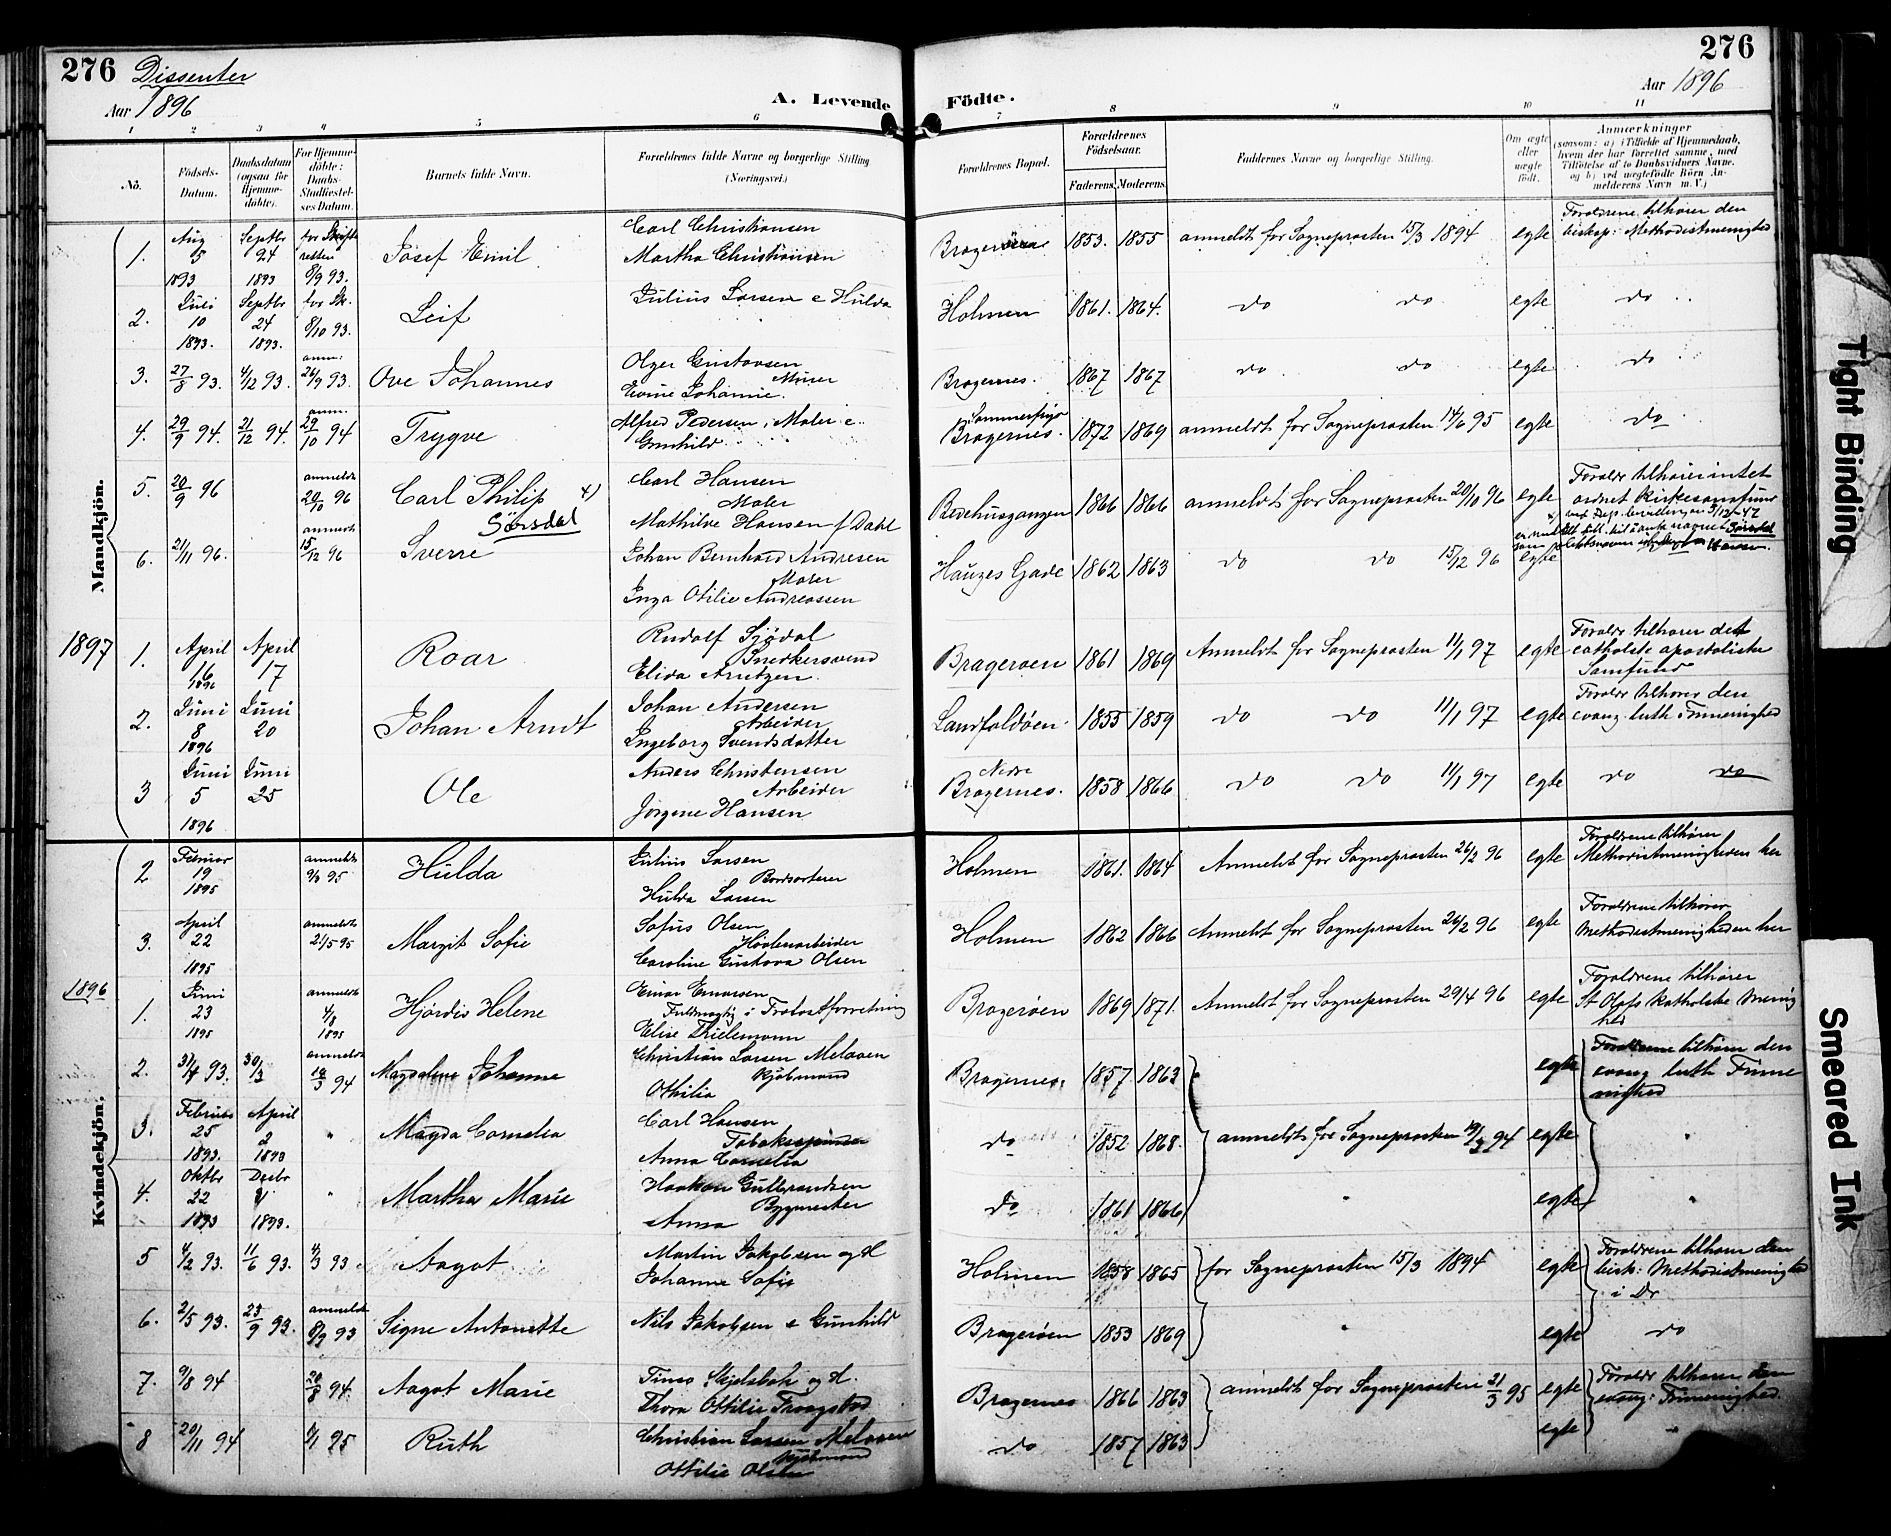 276 Dissenter
Aar 1896
A. Levende Födte.
276
Aar 1896
1 2 3 4 5 6 7 8 9 10 11
No.
Födsels-Datum.
Daabsdatum (ogsaa for Hjemme-döbte).
For Hjemme-döbte: Daabs-Stadfæstel-ses Datum.
Barnets fulde Navn.
Forældrenes fulde Navne og borgerlige Stilling (Næringsvei.)
Forældrenes Bopæl.
Forældrenes Födselsaar.
Faderens. Moderens.
Faddernes Navne og borgerlige Stilling.
Om ægte eller uægte födt.
Anmærkninger
(saasom: a) i Tilfælde af Hjemmedaab, hvem der har forrettet samme, med Tilföielse af to Daabsvidners Navne. og b) ved uægtefödte Börn Anmelderens Navn m. V.)
Mandkjön.
1. Aug 5 1893 Septbr 24 1893 8/9 93. Josef Emil Carl Christiansen Martha Christiansen Brageröen 1853. 1855 anmeldt for Sogneprosten 15/3 1894 egte Forældrene tilhører den biskop: Methodistmenighed
2. Juli 10 1893. Septbr 24 1893. 8/10 93. Leif Julius Larsen e Hulda Holmen 1861. 1864. do do egte do
3. 27/8 93. 4/12 93. anm: 26/9 93. Ove Johannes Olger Gustavsen Murer Johanne. Bragernes. 1867 1867 do do egte do
4. 29/9 94. 21/12 94. anm. 29/10 94 Trygve Alfred Pedersen, Maler e Gunhild Bragernes. 1872 1869 anmeldt for Sogneprosten 14/6 95 egte do
5. 20/9 96 anmeldt 20/10 96 Carl Philip x) Sörsdal Carl Hansen Maler Mathilde Hansen f Dahl Bedehusgangen 1866 1866 anmeldt for Sogneprosten 20/10 96 egte Foraldr tilhører intet ordnet Kirkesamfund
6. 21/11 96. anmeldt 15/12 96 Sverre Johan Bernhard Andresen Maler Inga Otilie Andreassen Hauges Gade 1862 1863 do do 15/12 96 egte
1897
1. April 16 1896 April 17 Roar Rudolf Sjödal Snedkersvend Elida Arntzen. Brageröen 1861 1869 Anmeldt for Sogneprosten 11/1 97 egte Foraldr tilhører det catholste apostoliske Samfund
2. Juni 8 1896 Juni 20 Johan Arndt Johan Andersen Arbeider Ingeborg Svendsdatter Landfaldöen. 1855 1859 do do 11/1 97 egte Foraldr tilhører den evang. luth. Frimenighed
3 Juni 5 1896 Juni 25 Ole Anders Christensen Arbeider Jörgine Hansen Nedre Bragernes. 1858 1866 do do 11/1 97 egte do do
Kvindekjön.
2 Februar 19 1895 anmeldt 95 Hulda Julius Larsen Bordsorterer Hulda Larsen Holmen 1861. 1864 Anmeldt for Sogneprosten 26/2 96 egte Forældrene tilhører Methodistmenigheden her
3. April 22 1895 anmeldt 21/5 95 Margit Sofie Sofus Olsen Høvlerarbeider Caroline Gustava Olsen Holmen 1862 1866 Anmeldt for Sogneprosten 26/2 96 egte Forældrene tilhører Methodistmenigheden her
1896
1. Juni 23 1895 anmeldt 4/8 1895 Hjördis Helene Einar Einarsen Fuldmægtig i Trælastforretning Elise Thielemann Brageröen 1869 1871. Anmeldt for Sogneprosten 29/4 96 egte Forældrene tilhører St Olafs katholske Menighed
2. 93. 30/3 anmeldt 3 94 Magdalene Johanne Christian Larsen Melaaen Kjöbmand Othilia Bragernes. 1857 1863 egte Forældrene tilhører den evang luth Frimenighed
3. Februar 25 1893. April 2 1893 " Magda Cornelia Carl Hansen Tobaksspinder Anna Cornelia do 1852 1868. anmeldt for Sogneprosten 94 egte "
4. Oktbr 22 1893 Decbr 1893. " Martha Marie Haakon Gulbrandsen Bygmester Anna do 1861 1866 " egte "
5 4/2 93. 11/6 93. 4/3 93 Aagot Martin Jakobsen og H Johanne Sofie Holmen 1858 1865 for Sogneprosten 15/3 1894 egte Forældrene tilhører den bisk: Methodistmenighed i Dr
6. 2/5 93. 23/9 93. anmeldt 8/9 93 Signe Antonette Nils Jakobsen e Gunhild Brageröen 1853 1869 " egte do
7. 9/8 94 20/8 94. Aagot Marie Skjelsbæk og H. Thora Ottilie Traagstad Bragernes 1866 1863 anmeldt for Sogneprosten 21/3 95 egte Foraldr tilhører den evang: Frimenighed.
8 20/11 94 95 Ruth Christian Larsen Melaaen Kjöbmand Ottilie Olsen do 1857 1863 egte "
Tight Binding
Smeared Ink